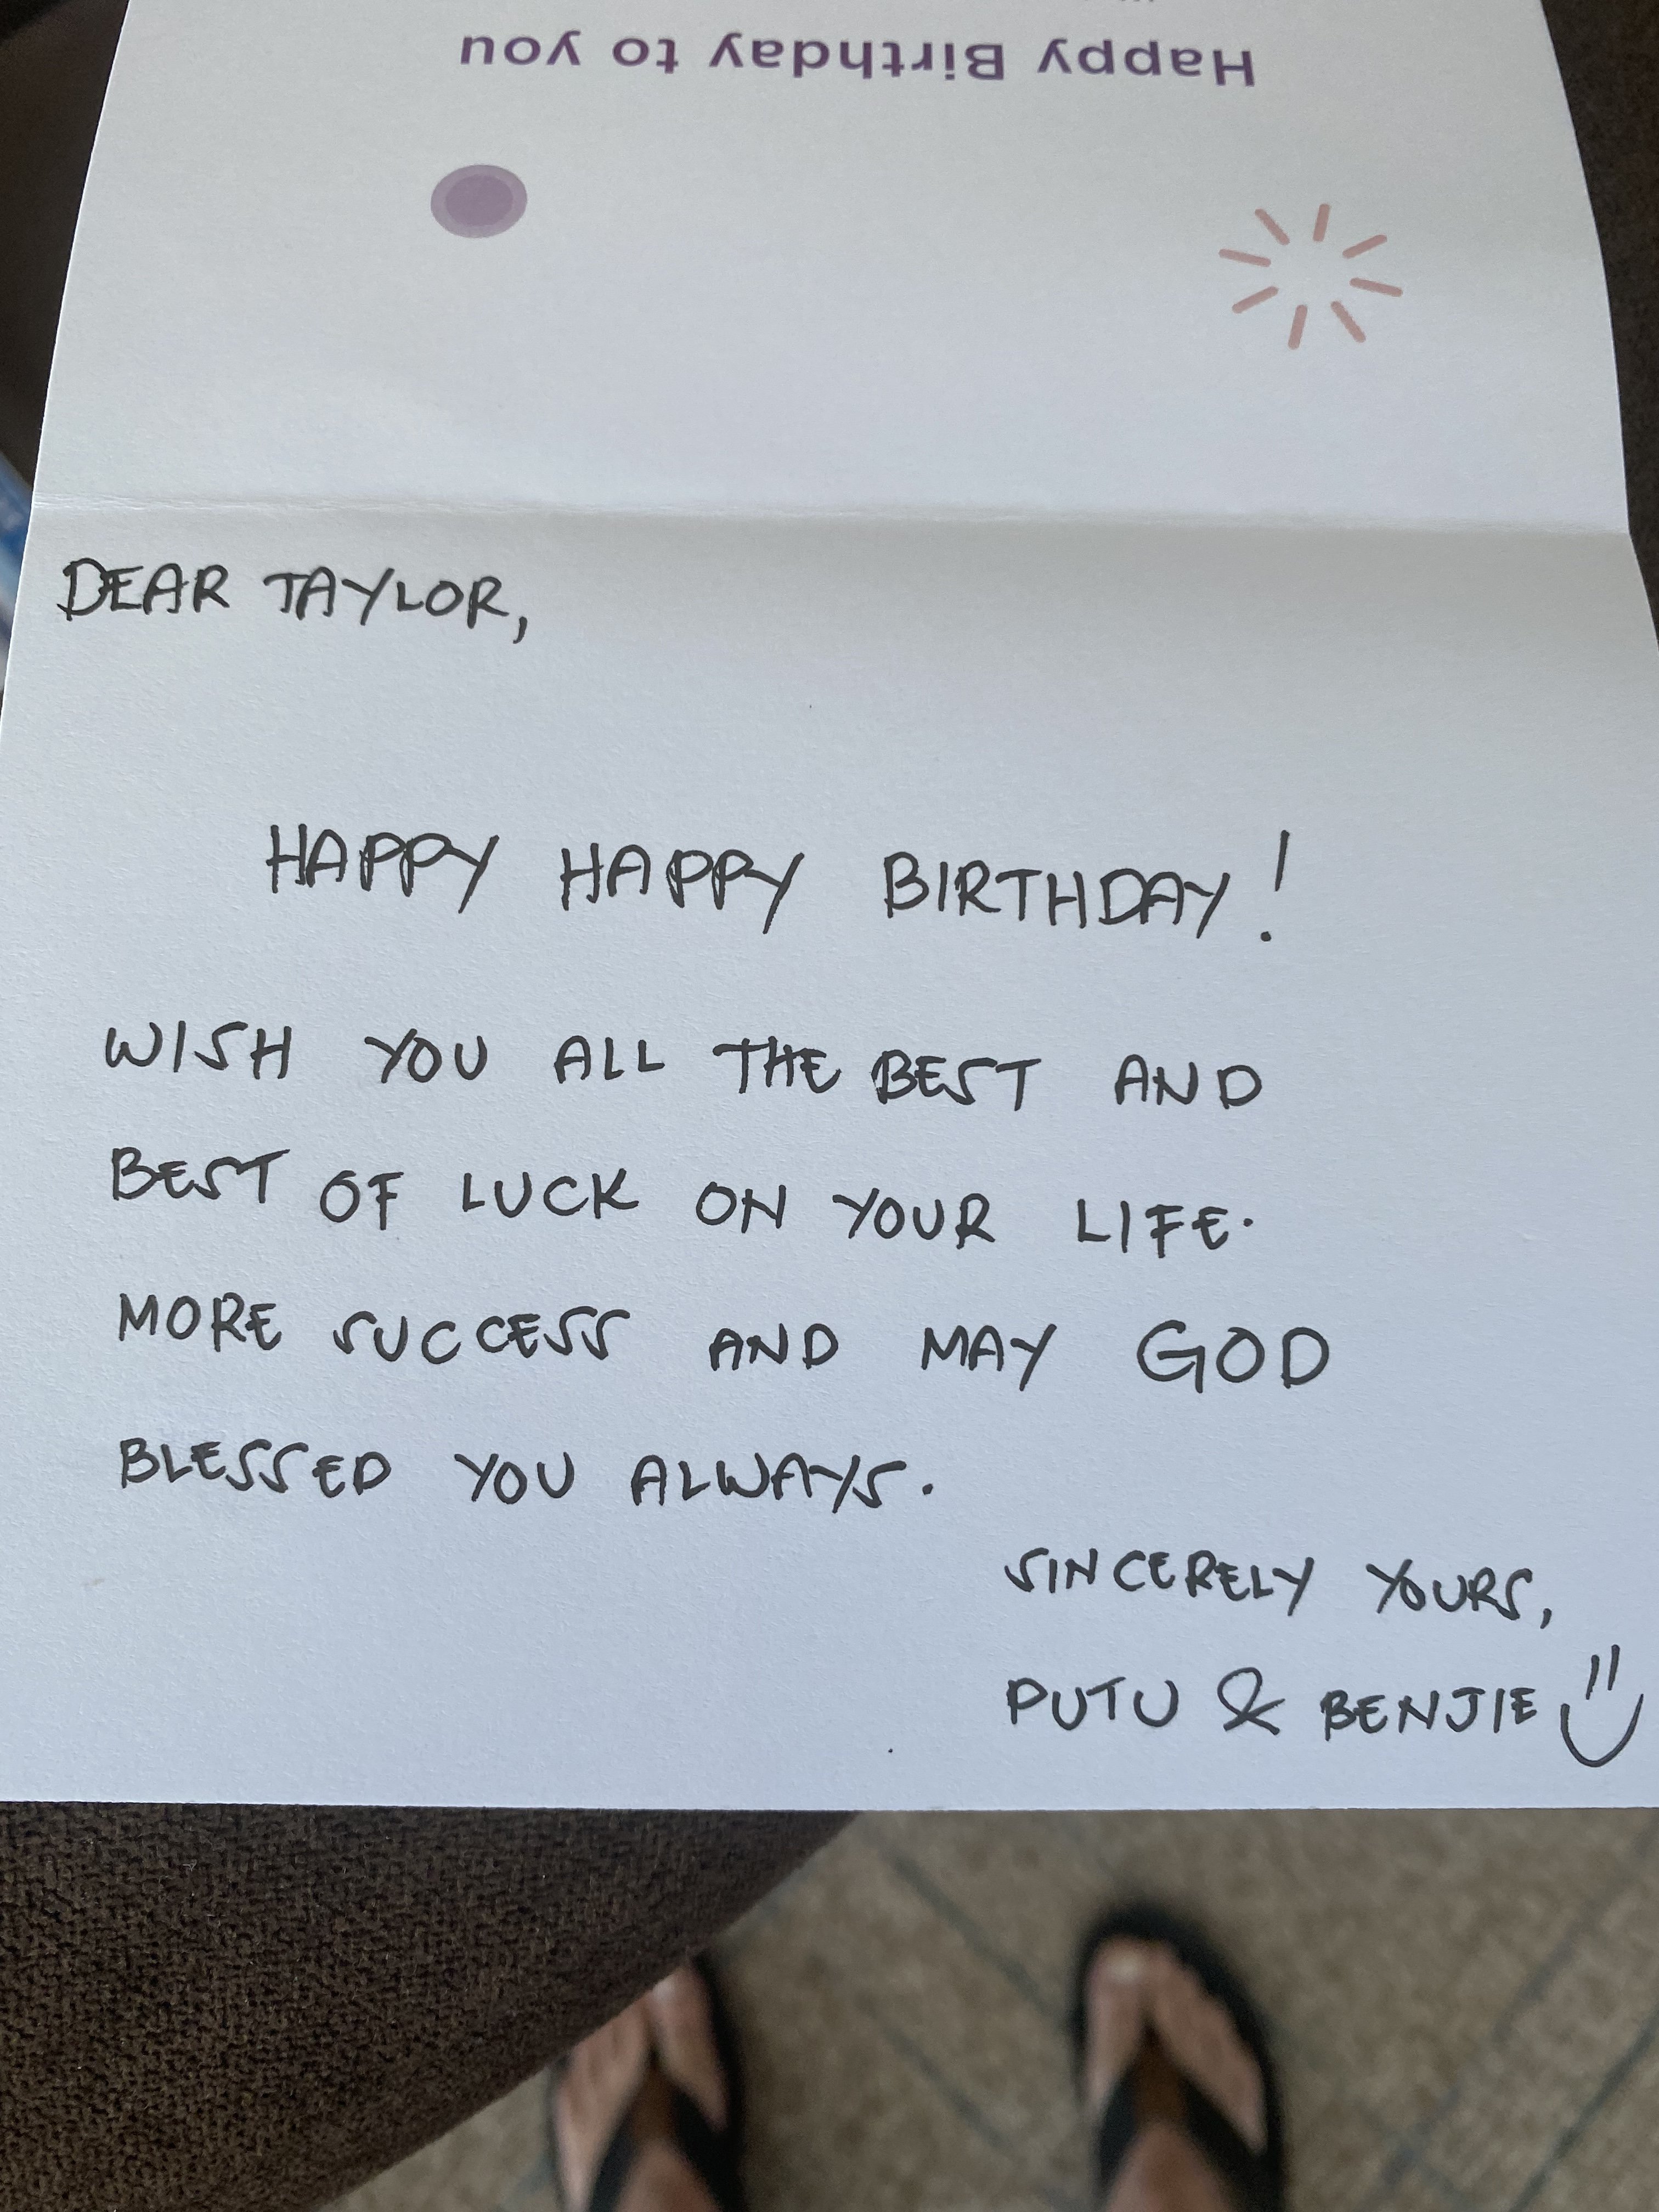 Happy Birthday to you
DEAR TAYLOR,
HAPPY HAPPY BIRTHDAY!
WISH YOU ALL THE BEST AND
BEST OF LUCK ON YOUR LIFE.
MORE SUCCESS AND MAY GOD
BLESSED YOU ALWAYS.
SINCERELY YOURS,
PUTU & BENJIE